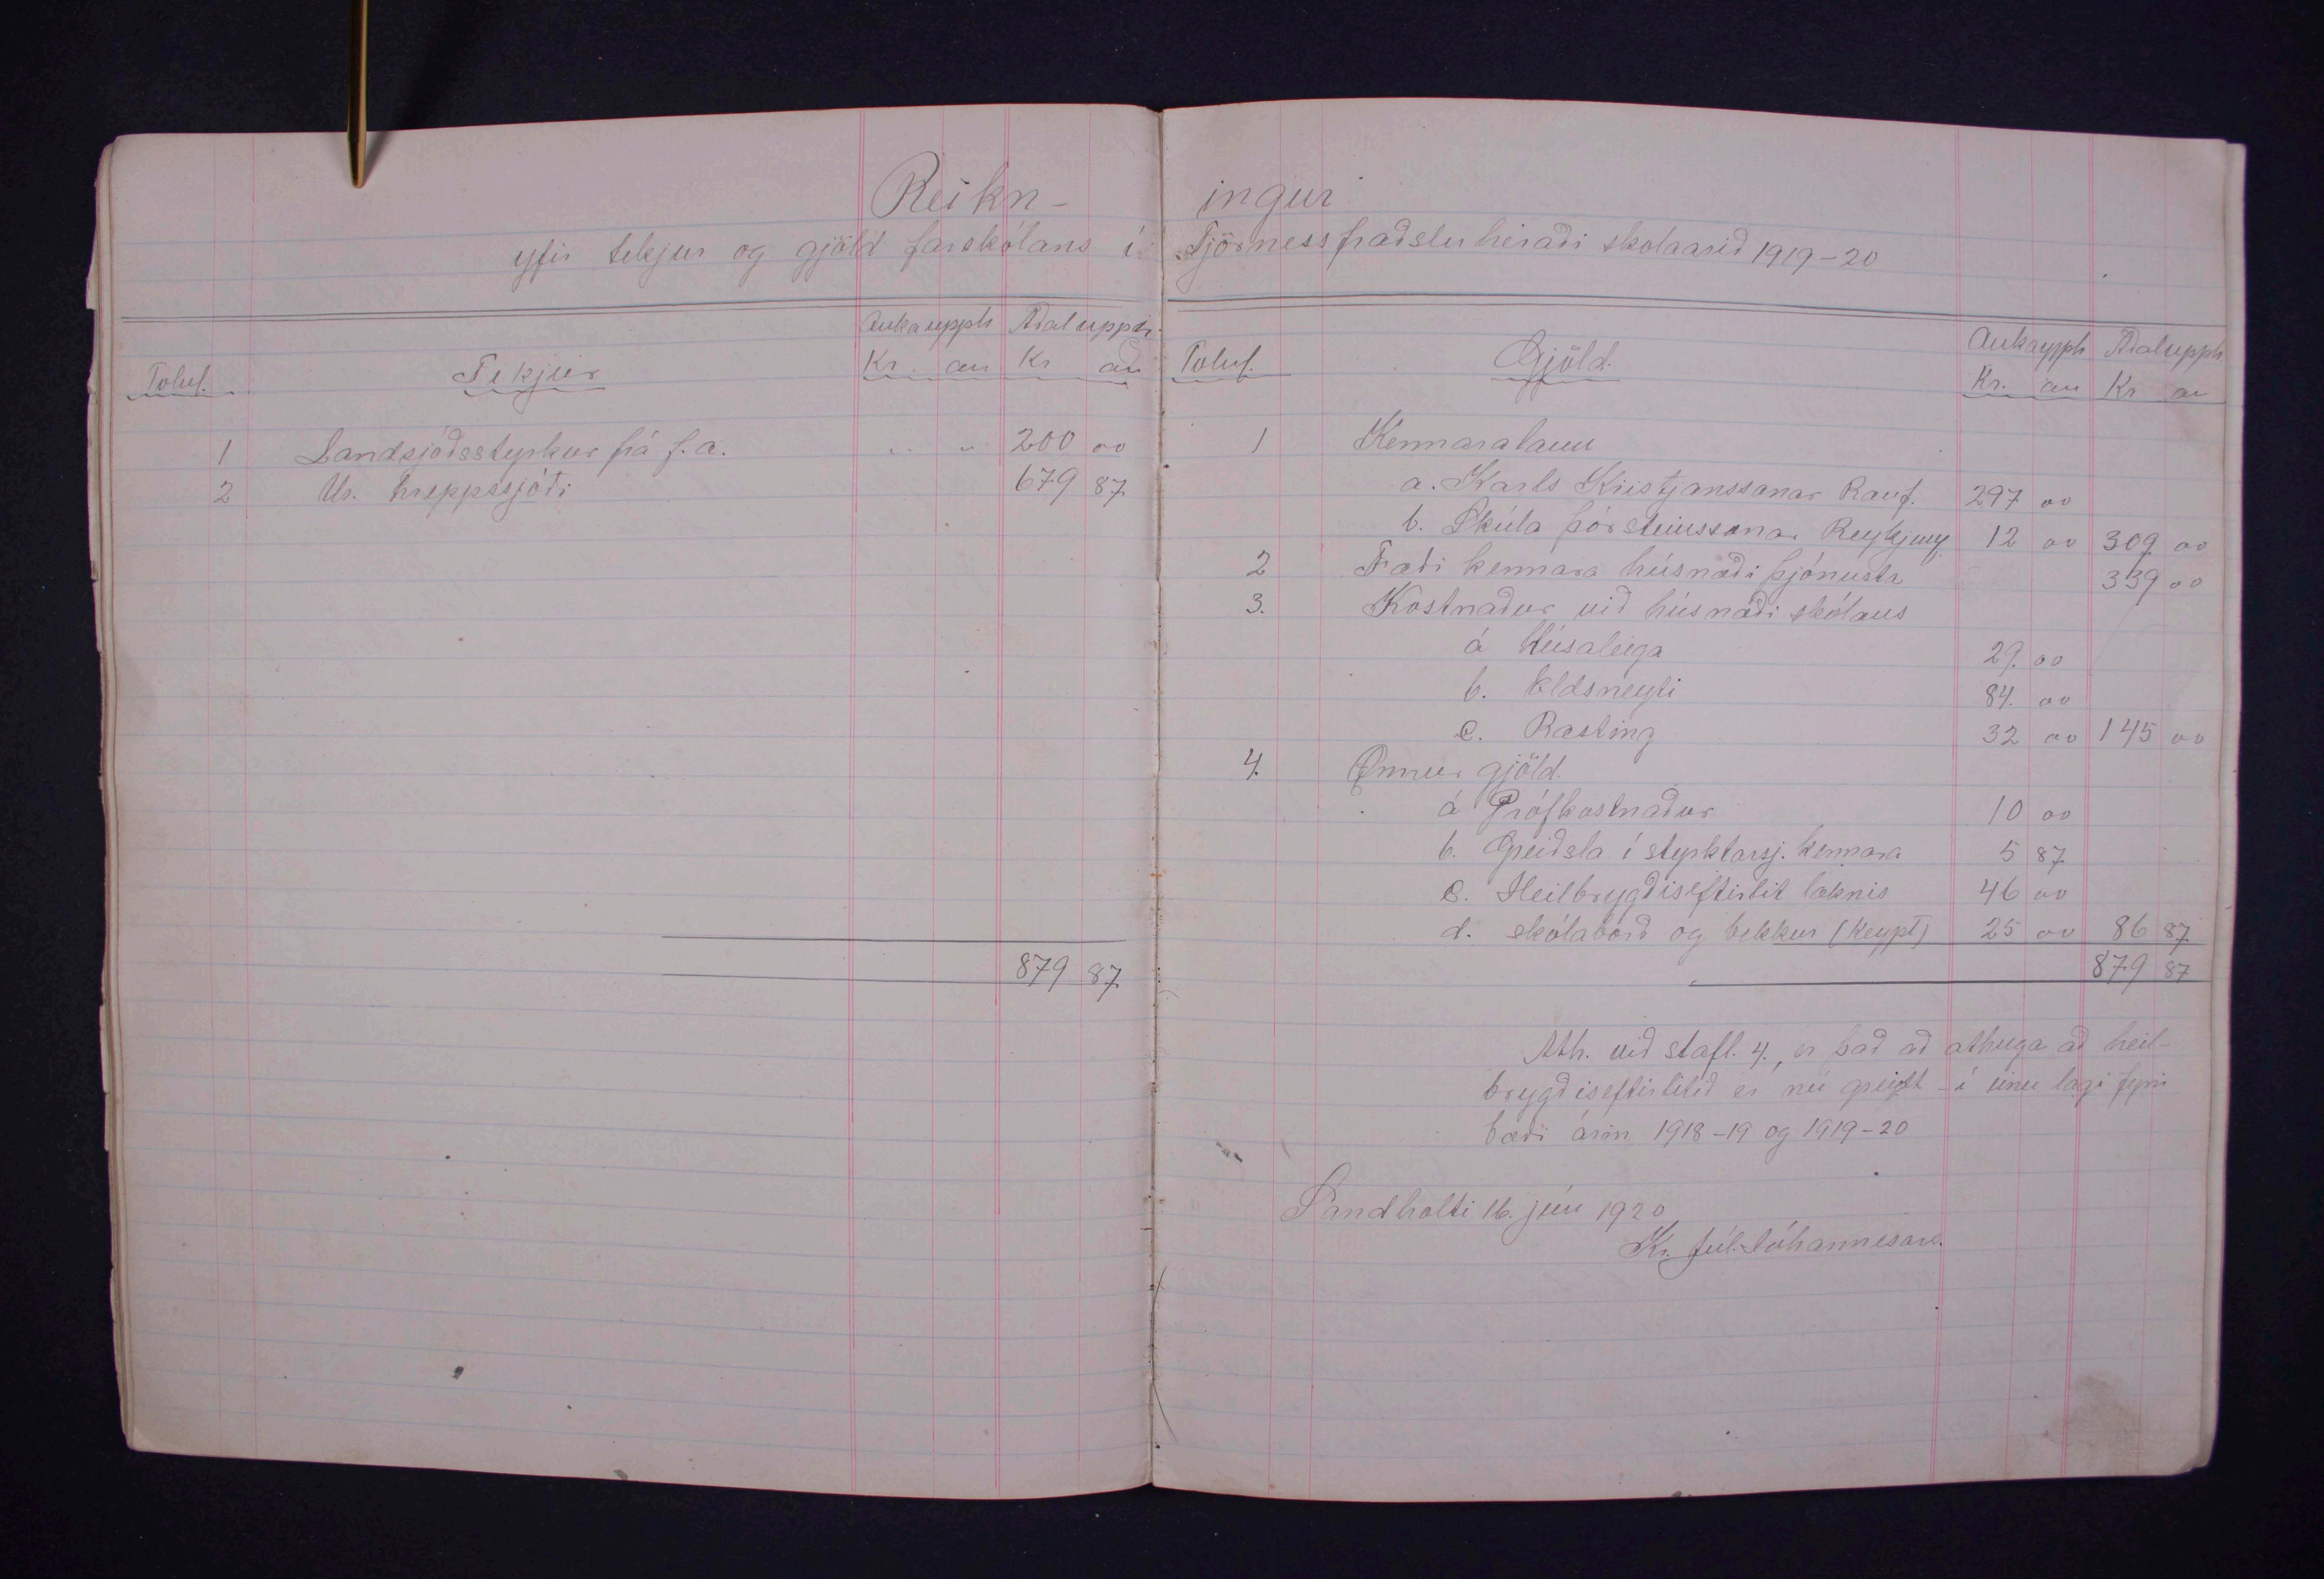 Reikn- ingur
yfir tekjur og gjöld farskólans í Tjörnessfræðsluhéraði skólaarið 1919-20
Aukaupph Aðalupph.
Töluf. Tekjur Kr. au Kr au
1 Landsjóðsstyrkur frá f. a. " " 200 00
2 Úr hreppssjóði 679 87
879 87
Aukaupph Aðalupph
Töluf. Gjöld. Kr. au Kr au
1 Kennaralaun
a. Karls Kristjánssonar Rauf. 297 00
b. Skúla Þórsteinssonar 12 00 309 00
2 Fæði kennara húsnæði þjónusta 339 00
3. Kostnaður við húsnæði skólans
a Húsaleiga 29. 00
b. Eldsneyti 84. 00
c. Ræsting 32 00 145 00
4. Önnur gjöld.
a Prófkostnaður 10 00
b. Greiðsla í styrktarsj. kennara 5 87
c. Heilbrygðiseftirlit læknis 46 00
d. skólaborð og bekkur (keypt) 25 00 86 87
879 87
Ath. við stafl. 4., er það að athuga að heil-
brygðiseftirlitið er nú greitt í einu lagi fyrir
bæði árin 1918-19 og 1919-20
Sandhólti 16. jún 1920
Kr. Júl. Jóhannesson.